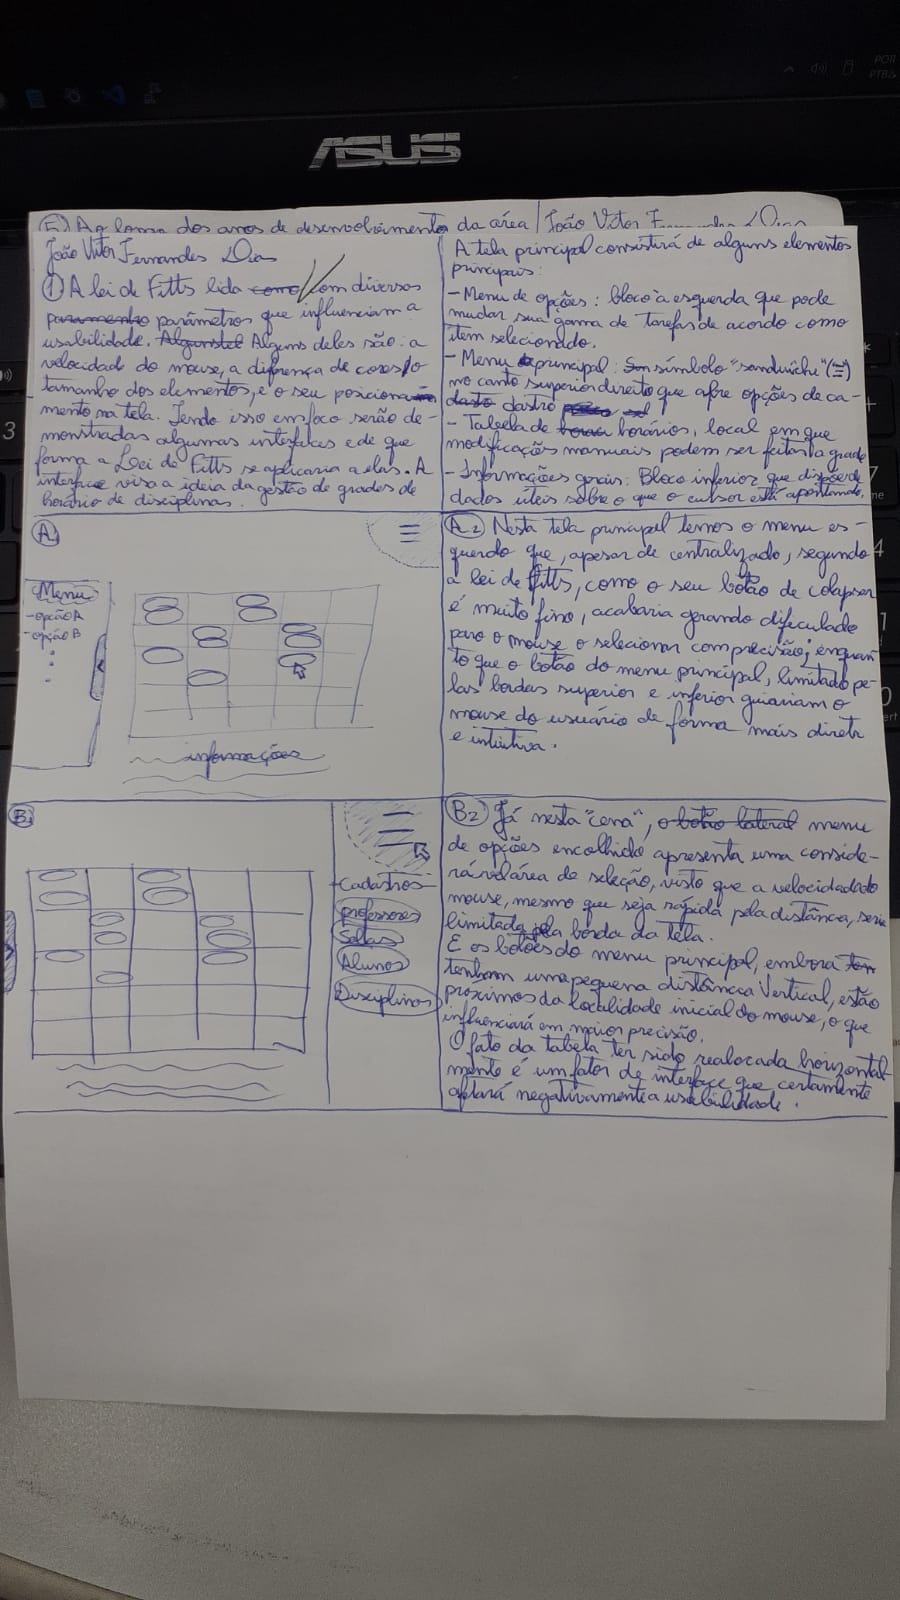 POR
PTB2
ASUS
5) Ao longo dos anos de desenvolvimento da área / João Vitor Fernandes Dias
João Vitor Fernandes Dias
① A lei de Fitts lida como com diversos
paramento parâmetros que influenciam a
usabilidade. Alguns del Alguns deles são: a
velocidade do mouse, a diferença de cores, o
tamanho dos elementos, e o seu posiciona-
mento na tela. Tendo isso em foco serão de-
monstradas algumas interfaces e de que
forma a Lei de Fitts se aplicaria a elas. A
interface visa a ideia da gestão de grades de
horário de disciplinas.
A tela principal consistirá de alguns elementos
principais:
- Menu de opções: bloco à esquerda que pode
mudar sua gama de tarefas de acordo com o
item selecionado.
- Menu principal: símbolo "sanduíche" (≡)
no canto superior direito que abre opções de ca-
dastro
- Tabela de horários, local em que
modificações manuais podem ser feitas à grade
- Informações gerais: Bloco inferior que dispõe de
dados úteis sobre o que o cursor está apontando.
A1
Menu
- opção A
- opção B
informações
A2 Nesta tela principal temos o menu es-
querdo que, apesar de centralizado, segundo
a lei de Fitts, como o seu botão de colapsar
é muito fino, acabaria gerando dificuldade
para o mouse o selecionar com precisão; enquan-
to que o botão do menu principal, limitado pe-
las bordas superior e inferior guiariam o
mouse do usuário de forma mais direta
e intuitiva.
B1
Cadastros
professores
Salas
Alunos
Disciplinas
B2 Já nesta "cena", o botão lateral menu
de opções encolhido apresenta uma conside-
rável área de seleção, visto que a velocidade do
mouse, mesmo que seja rápida pela distância, seria
limitada pela borda da tela.
E os botões do menu principal, embora ten
tenham uma pequena distância vertical, estão
próximos da localidade inicial do mouse, o que
influenciará em maior precisão.
O fato da tabela ter sido realocada horizontal-
mente é um fator de interface que certamente
afetará negativamente a usabilidade.